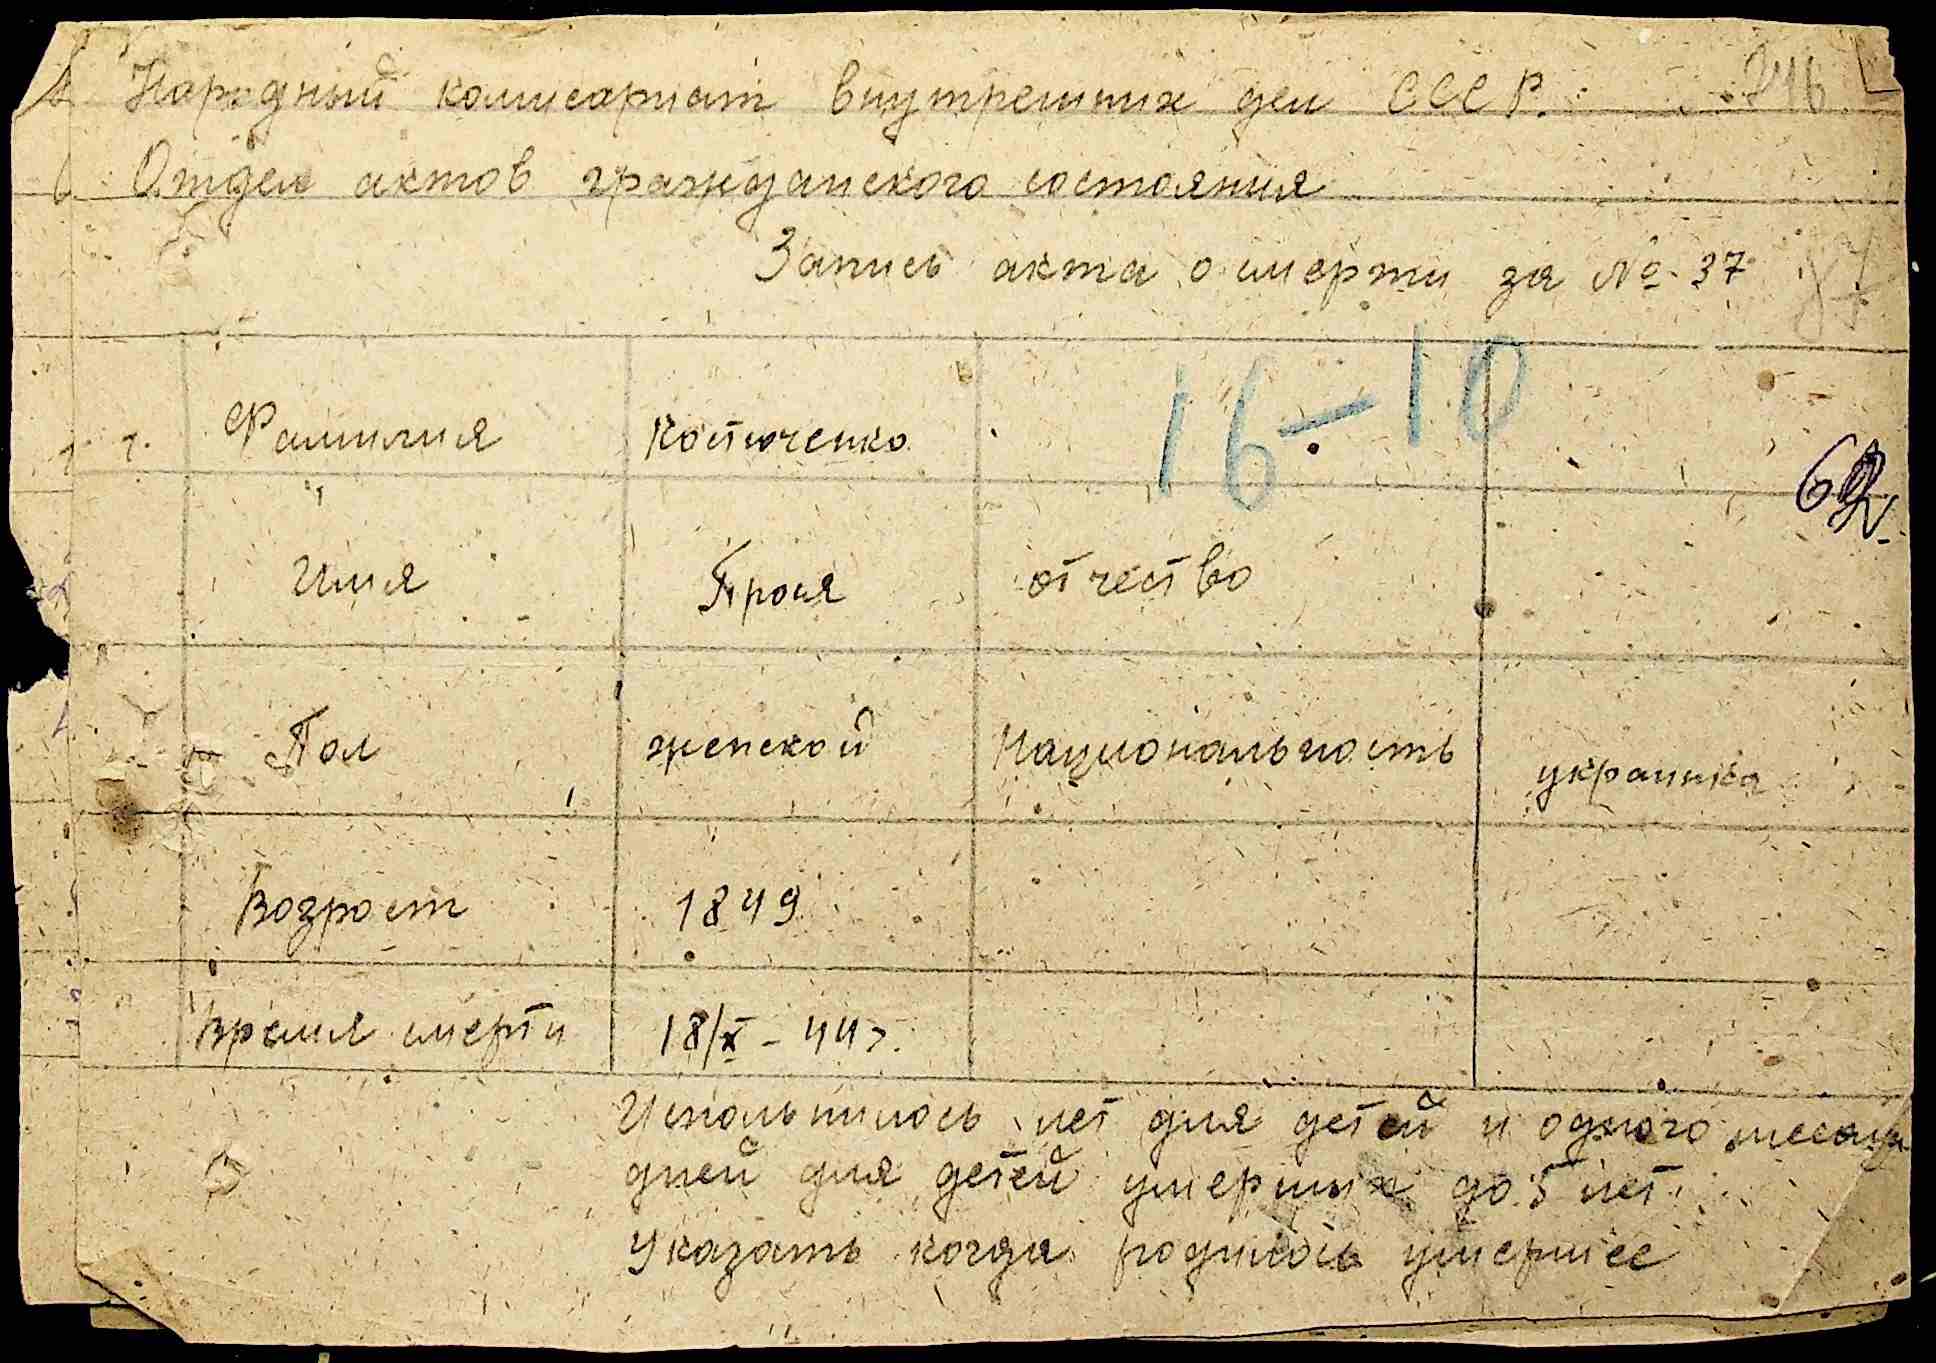 Народный комисариат внутренних дел СССР.
Отдел актов гражданского состояния
Запись акта о смерти за № 37
16-10
1. Фамилия Костюченко
Имя Прося отчество
Пол женской Национальность украинка
Возрост 1849
Время смерти 18/X - 44г.
Испольнилось лет для детей и одного месяца
дней для детей умерших до 5 лет
Указать когда родилось умершее